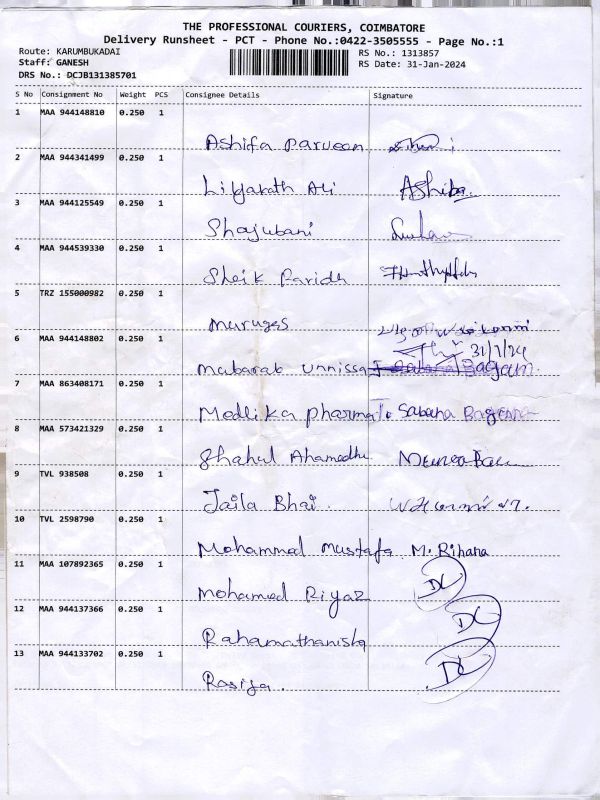 THE PROFESSIONAL COURIERS, COIMBATORE
Delivery Runsheet - PCT - Phone No.:0422-3505555 - Page No.:1
Route: KARUMBUKADAI
RS No.: 1313857
Staff: GANESH
RS Date: 31-Jan-2024
DRS No.: DCJB131385701
S No Consignment No Weight PCS Consignee Details Signature
1 MAA 944148810 0.250 1
Ashifa Parveen
2 MAA 944341499 0.250 1
Liyakath Ali Ashiba
3 MAA 944125549 0.250 1
Shajubani
4 MAA 944539330 0.250 1
Sheik Faridh
5 TRZ 155000982 0.250 1
Muruges
31/1/24
6 MAA 944148802 0.250 1
Mubarab unnissa Bagam
7 MAA 863408171 0.250 1
Medlika Pharma Sabana Bagam
8 MAA 573421329 0.250 1
Shahul Ahamedhu
9 TVL 938508 0.250 1
Jaila Bhai
10 TVL 2598790 0.250 1
Mohammed Mustafa M. Rihana
11 MAA 107892365 0.250 1
Mohamed Riyaz DC
12 MAA 944137366 0.250 1
Rahamathanisha DC
13 MAA 944133702 0.250 1
Rasiya. DC